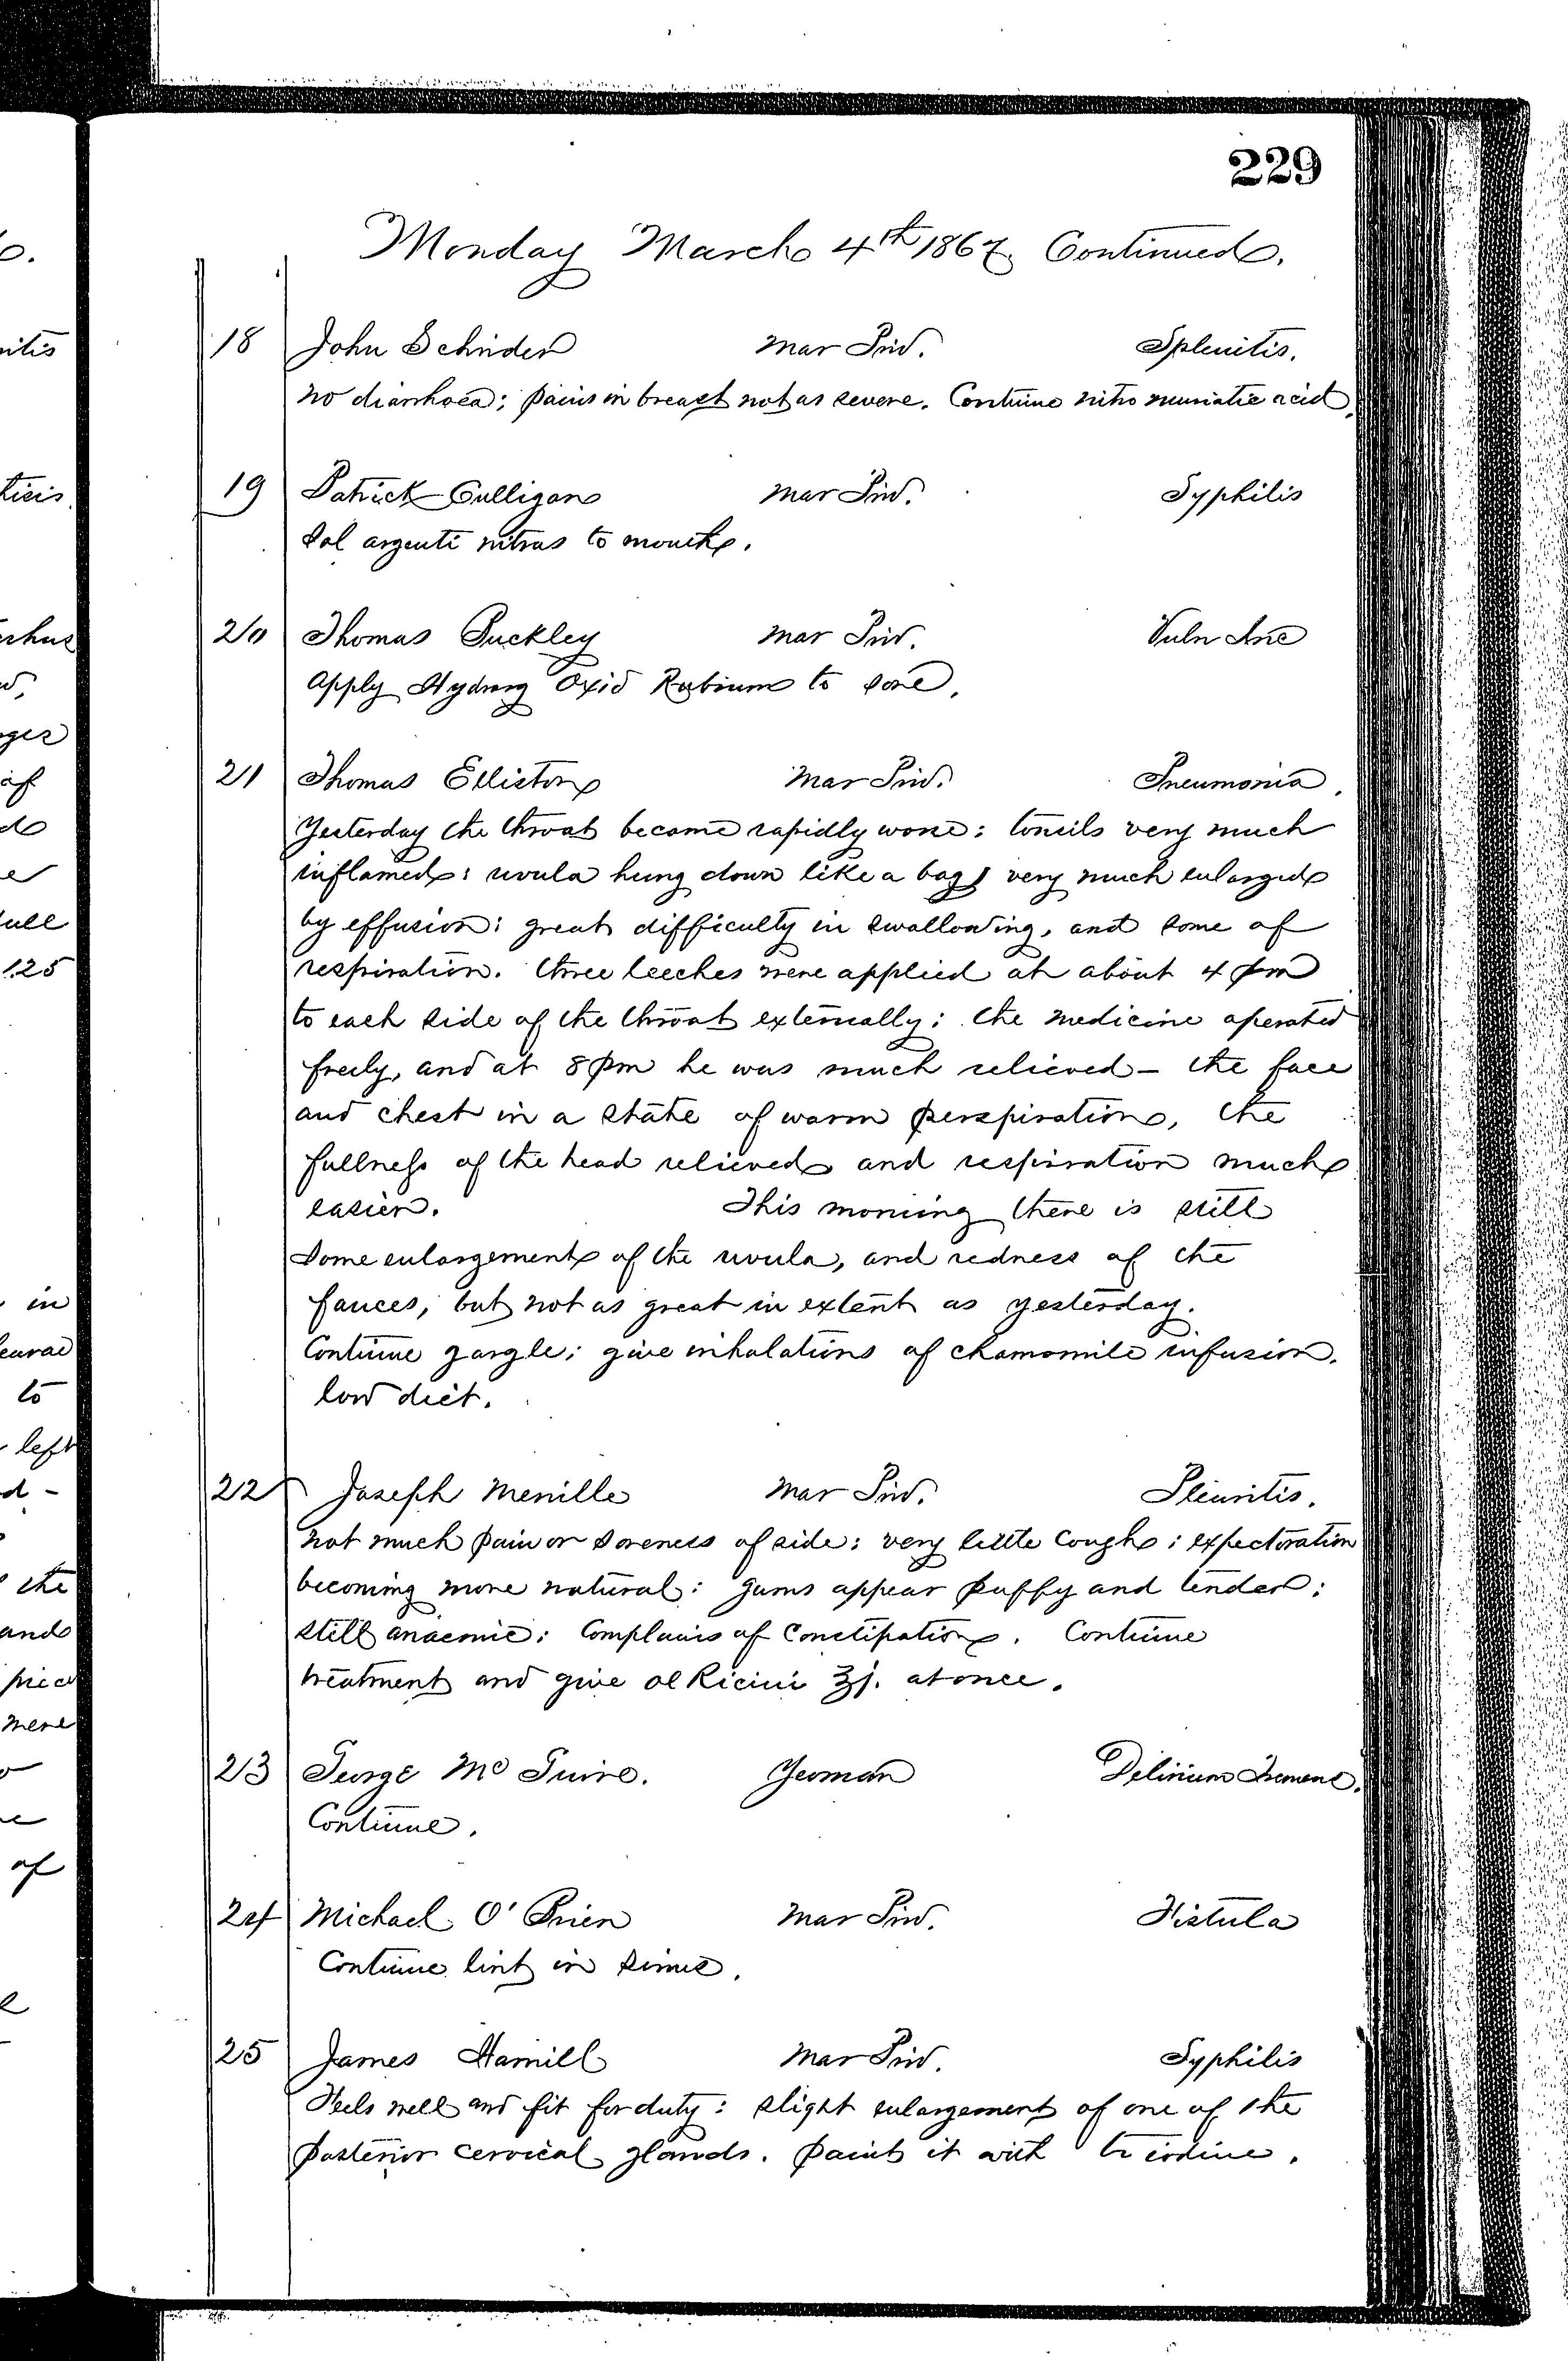 229
Monday March 4th 1867 Continued.
18 John Schrider Mar Priv. Splenitis.
no diarrhoea; pains in breast not as severe. Continue nitro muriatic acid.
19 Patrick Culligan Mar Priv. Syphilis
Sol argenti nitras to mouth.
20 Thomas Buckley Mar Priv. Vuln Inc
Apply Hydrarg Oxid Rubrum to sore.
21 Thomas Elliston Mar Priv. Pneumonia.
Yesterday the throat become rapidly worse: tonsils very much
inflamed: uvula hung down like a bag, very much enlarged
by effusion: great difficulty in swallowing, and some of
respiration. three leeches were applied at about 4 pm
to each side of the throat externally: the medicine operated
freely, and at 8 pm he was much relieved - the face
and chest in a state of warm perspiration, the
fullness of the head relieved and respiration much
easier. This morning there is still
some enlargement of the uvula, and redness of the
fauces, but not as great in extent as yesterday.
Continue gargle; give inhalations of chamomile infusion.
low diet.
22 Joseph Merville Mar Priv. Pleuritis.
not much pain or soreness of side: very little cough: expectoration
becoming more natural: gums appear puffy and tender:
still anaemic: Complains of Constipation. Continue
treatment and give ol Ricini ℥j. at once.
23 George McGuire. Yeoman Delirium Tremens.
Continue.
24 Michael O'Brien Mar Priv. Fistula
Continue lint in sinus.
25 James Hamill Mar Priv. Syphilis
Feels well and fit for duty: slight enlargement of one of the
posterior cervical glands. paint it with tr iodine.